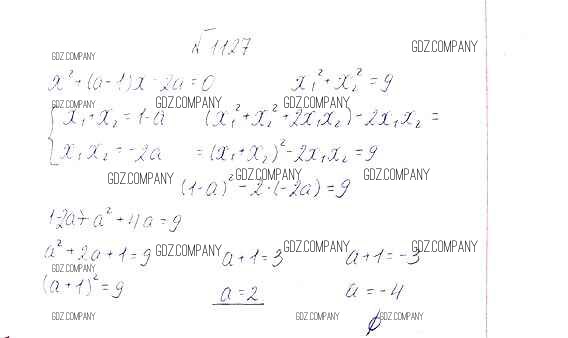 № 1127
GDZ.COMPANY GDZ.COMPANY
x² + (a - 1)x - 2a = 0 x₁² + x₂² = 9
GDZ.COMPANY GDZ.COMPANY GDZ.COMPANY
{ x₁ + x₂ = 1 - a (x₁² + x₂² + 2x₁x₂) - 2x₁x₂ =
x₁x₂ = -2a = (x₁ + x₂)² - 2x₁x₂ = 9
GDZ.COMPANY GDZ.COMPANY GDZ.COMPANY
(1 - a)² - 2·(-2a) = 9
1 - 2a + a² + 4a = 9
a² + 2a + 1 = 9 GDZ.COMPANY a + 1 = 3 GDZ.COMPANY a + 1 = -3 GDZ.COMPANY
GDZ.COMPANY
(a + 1)² = 9 a = 2 a = -4
GDZ.COMPANY GDZ.COMPANY GDZ.COMPANY